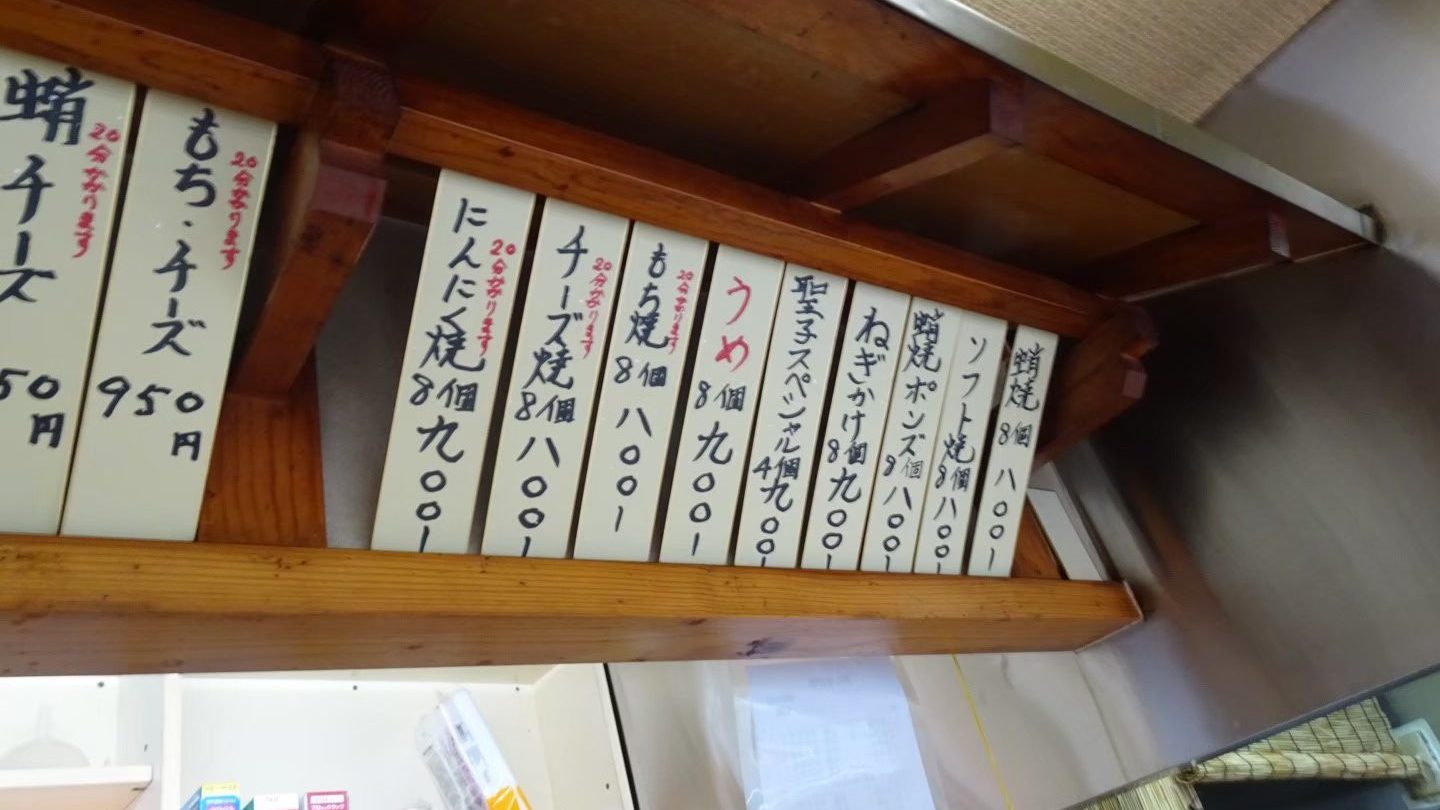 蛸焼 8個 八〇〇ー
ソフト焼 8個 八〇〇ー
蛸焼ポンズ 8個 八〇〇ー
ねぎかけ 8個 九〇〇ー
聖子スペシャル 4個 九〇〇ー
うめ 8個 九〇〇ー
もち焼 8個 八〇〇ー
20分かかります
チーズ焼 8個 八〇〇ー
20分かかります
にんにく焼 8個 九〇〇ー
20分かかります
もち・チーズ 950円
20分かかります
蛸チーズ 50円
20分かかります